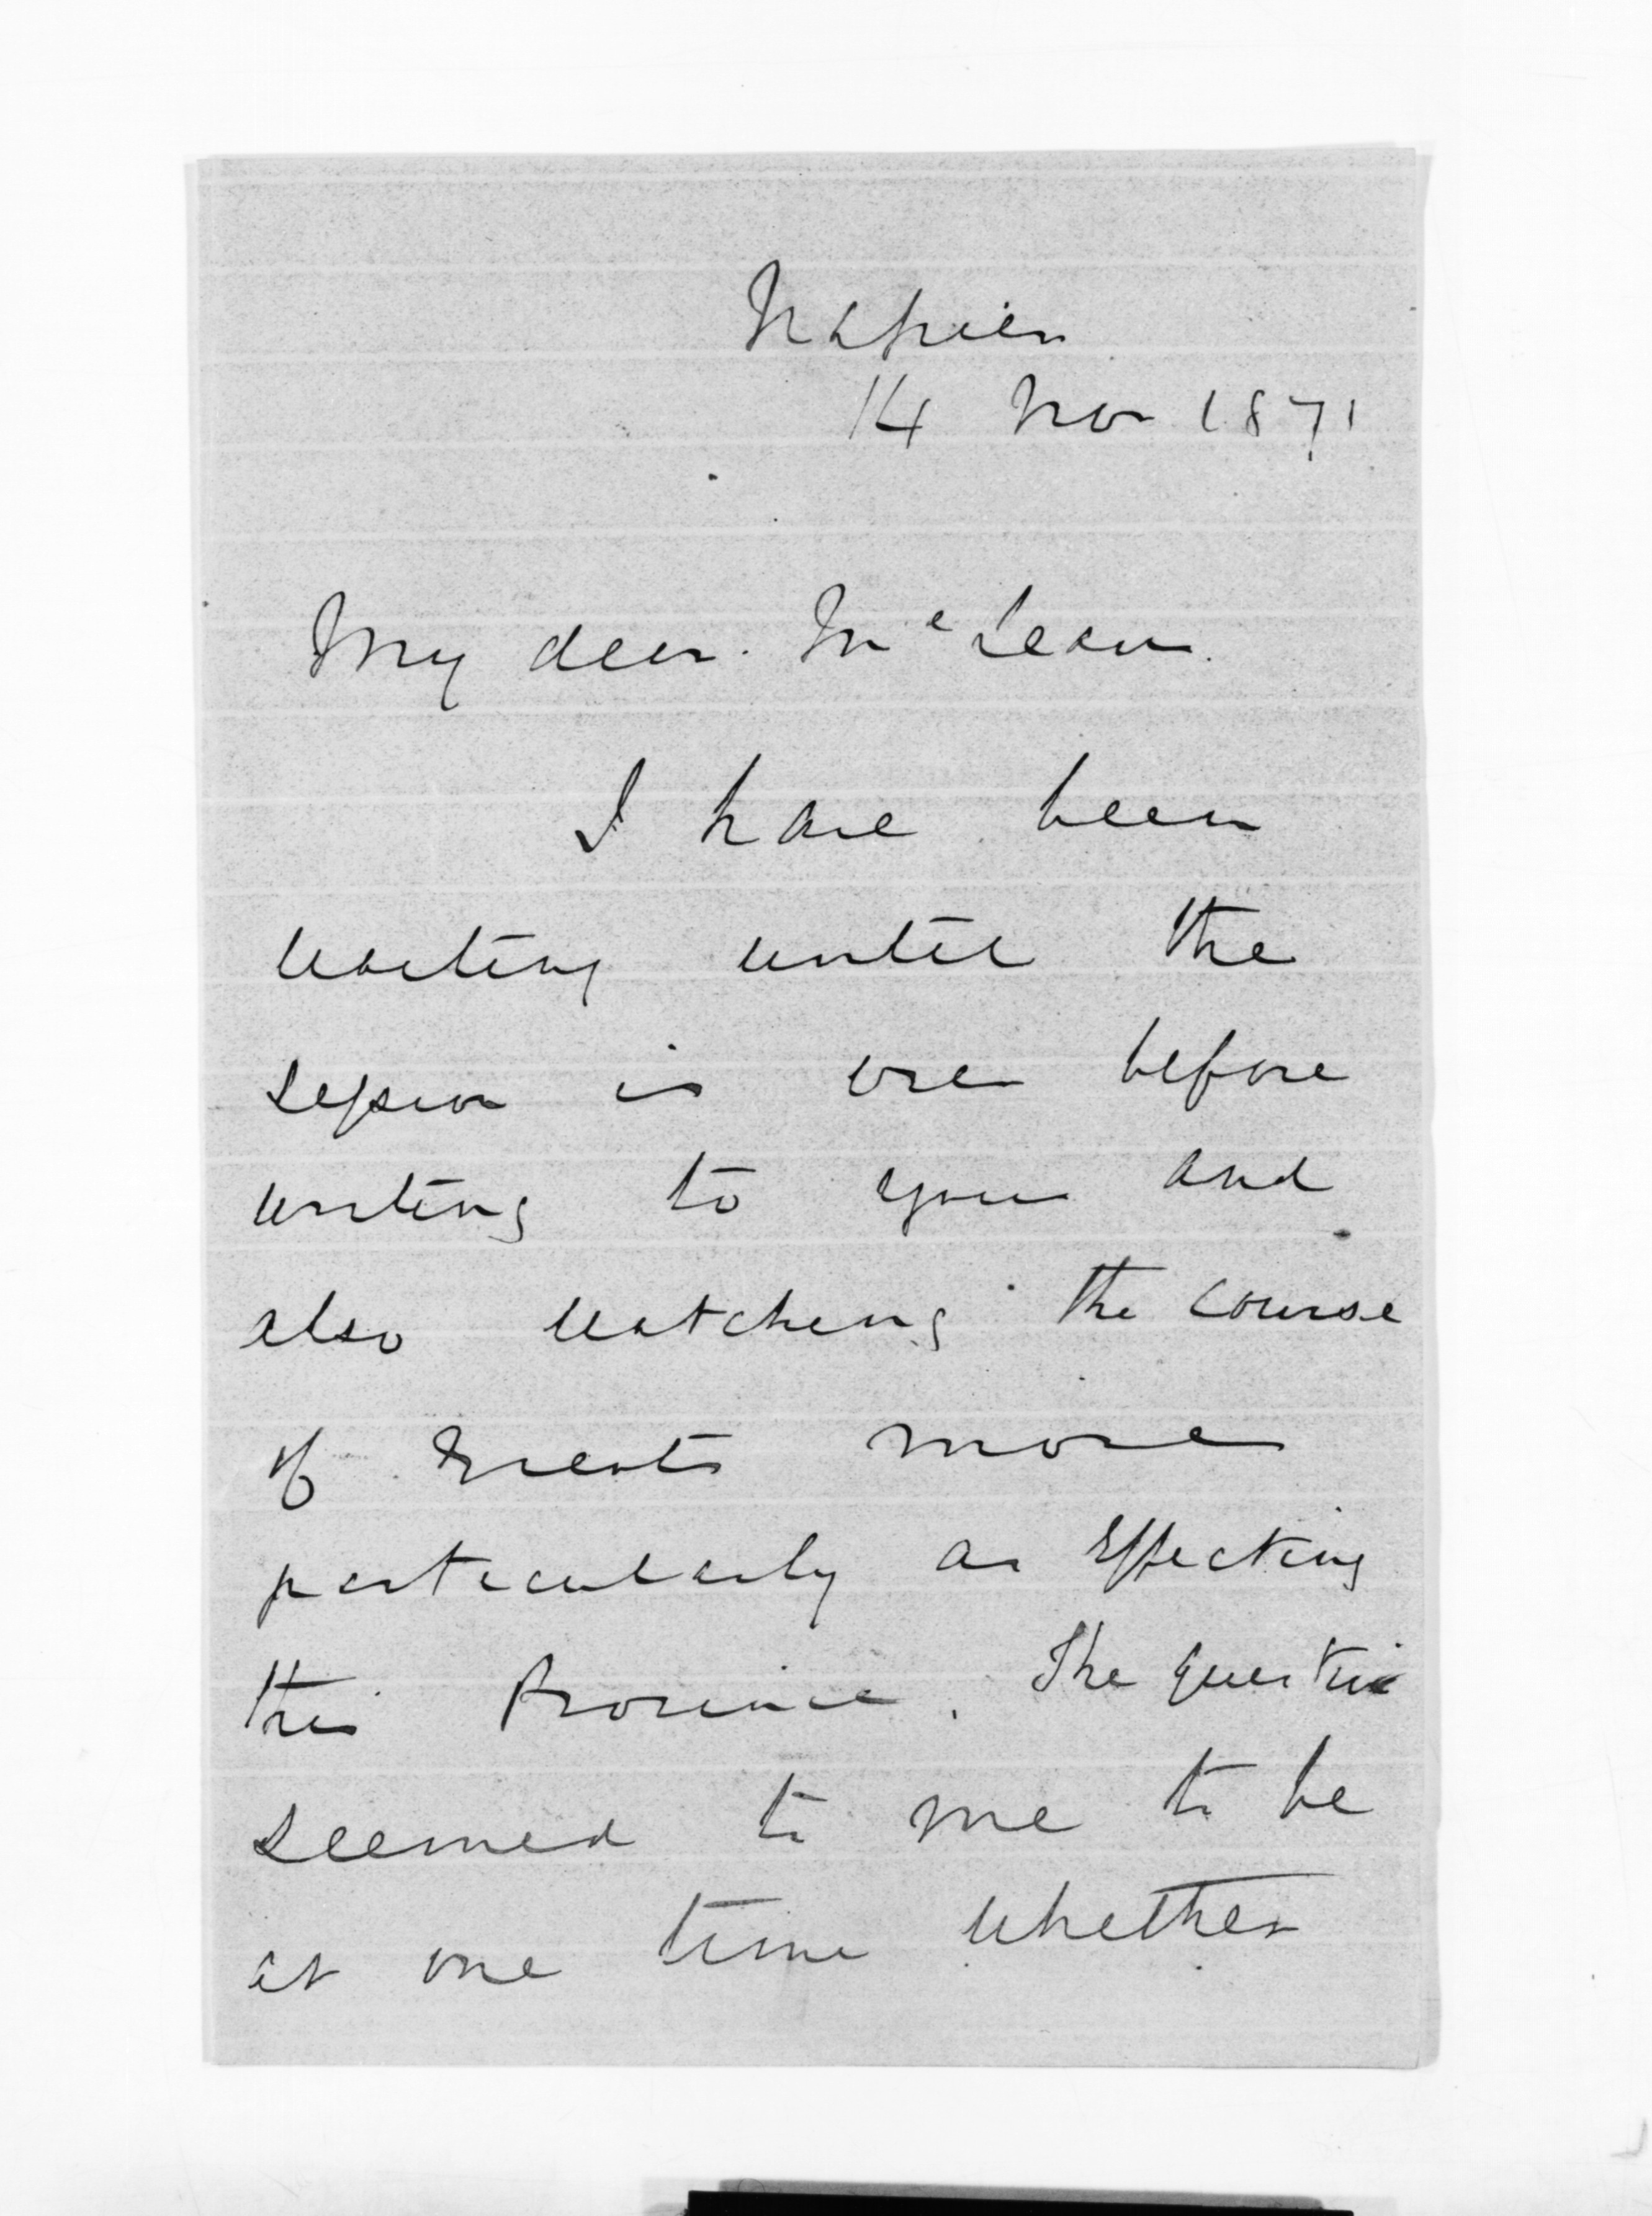 Napier
14 Nov 1871
My dear McLean.
I have been
waiting until the
session is over before
writing to you and
also watching the course
of Events more
particularly as Effecting
this Province. The question
seemed to me to be
at one time whether